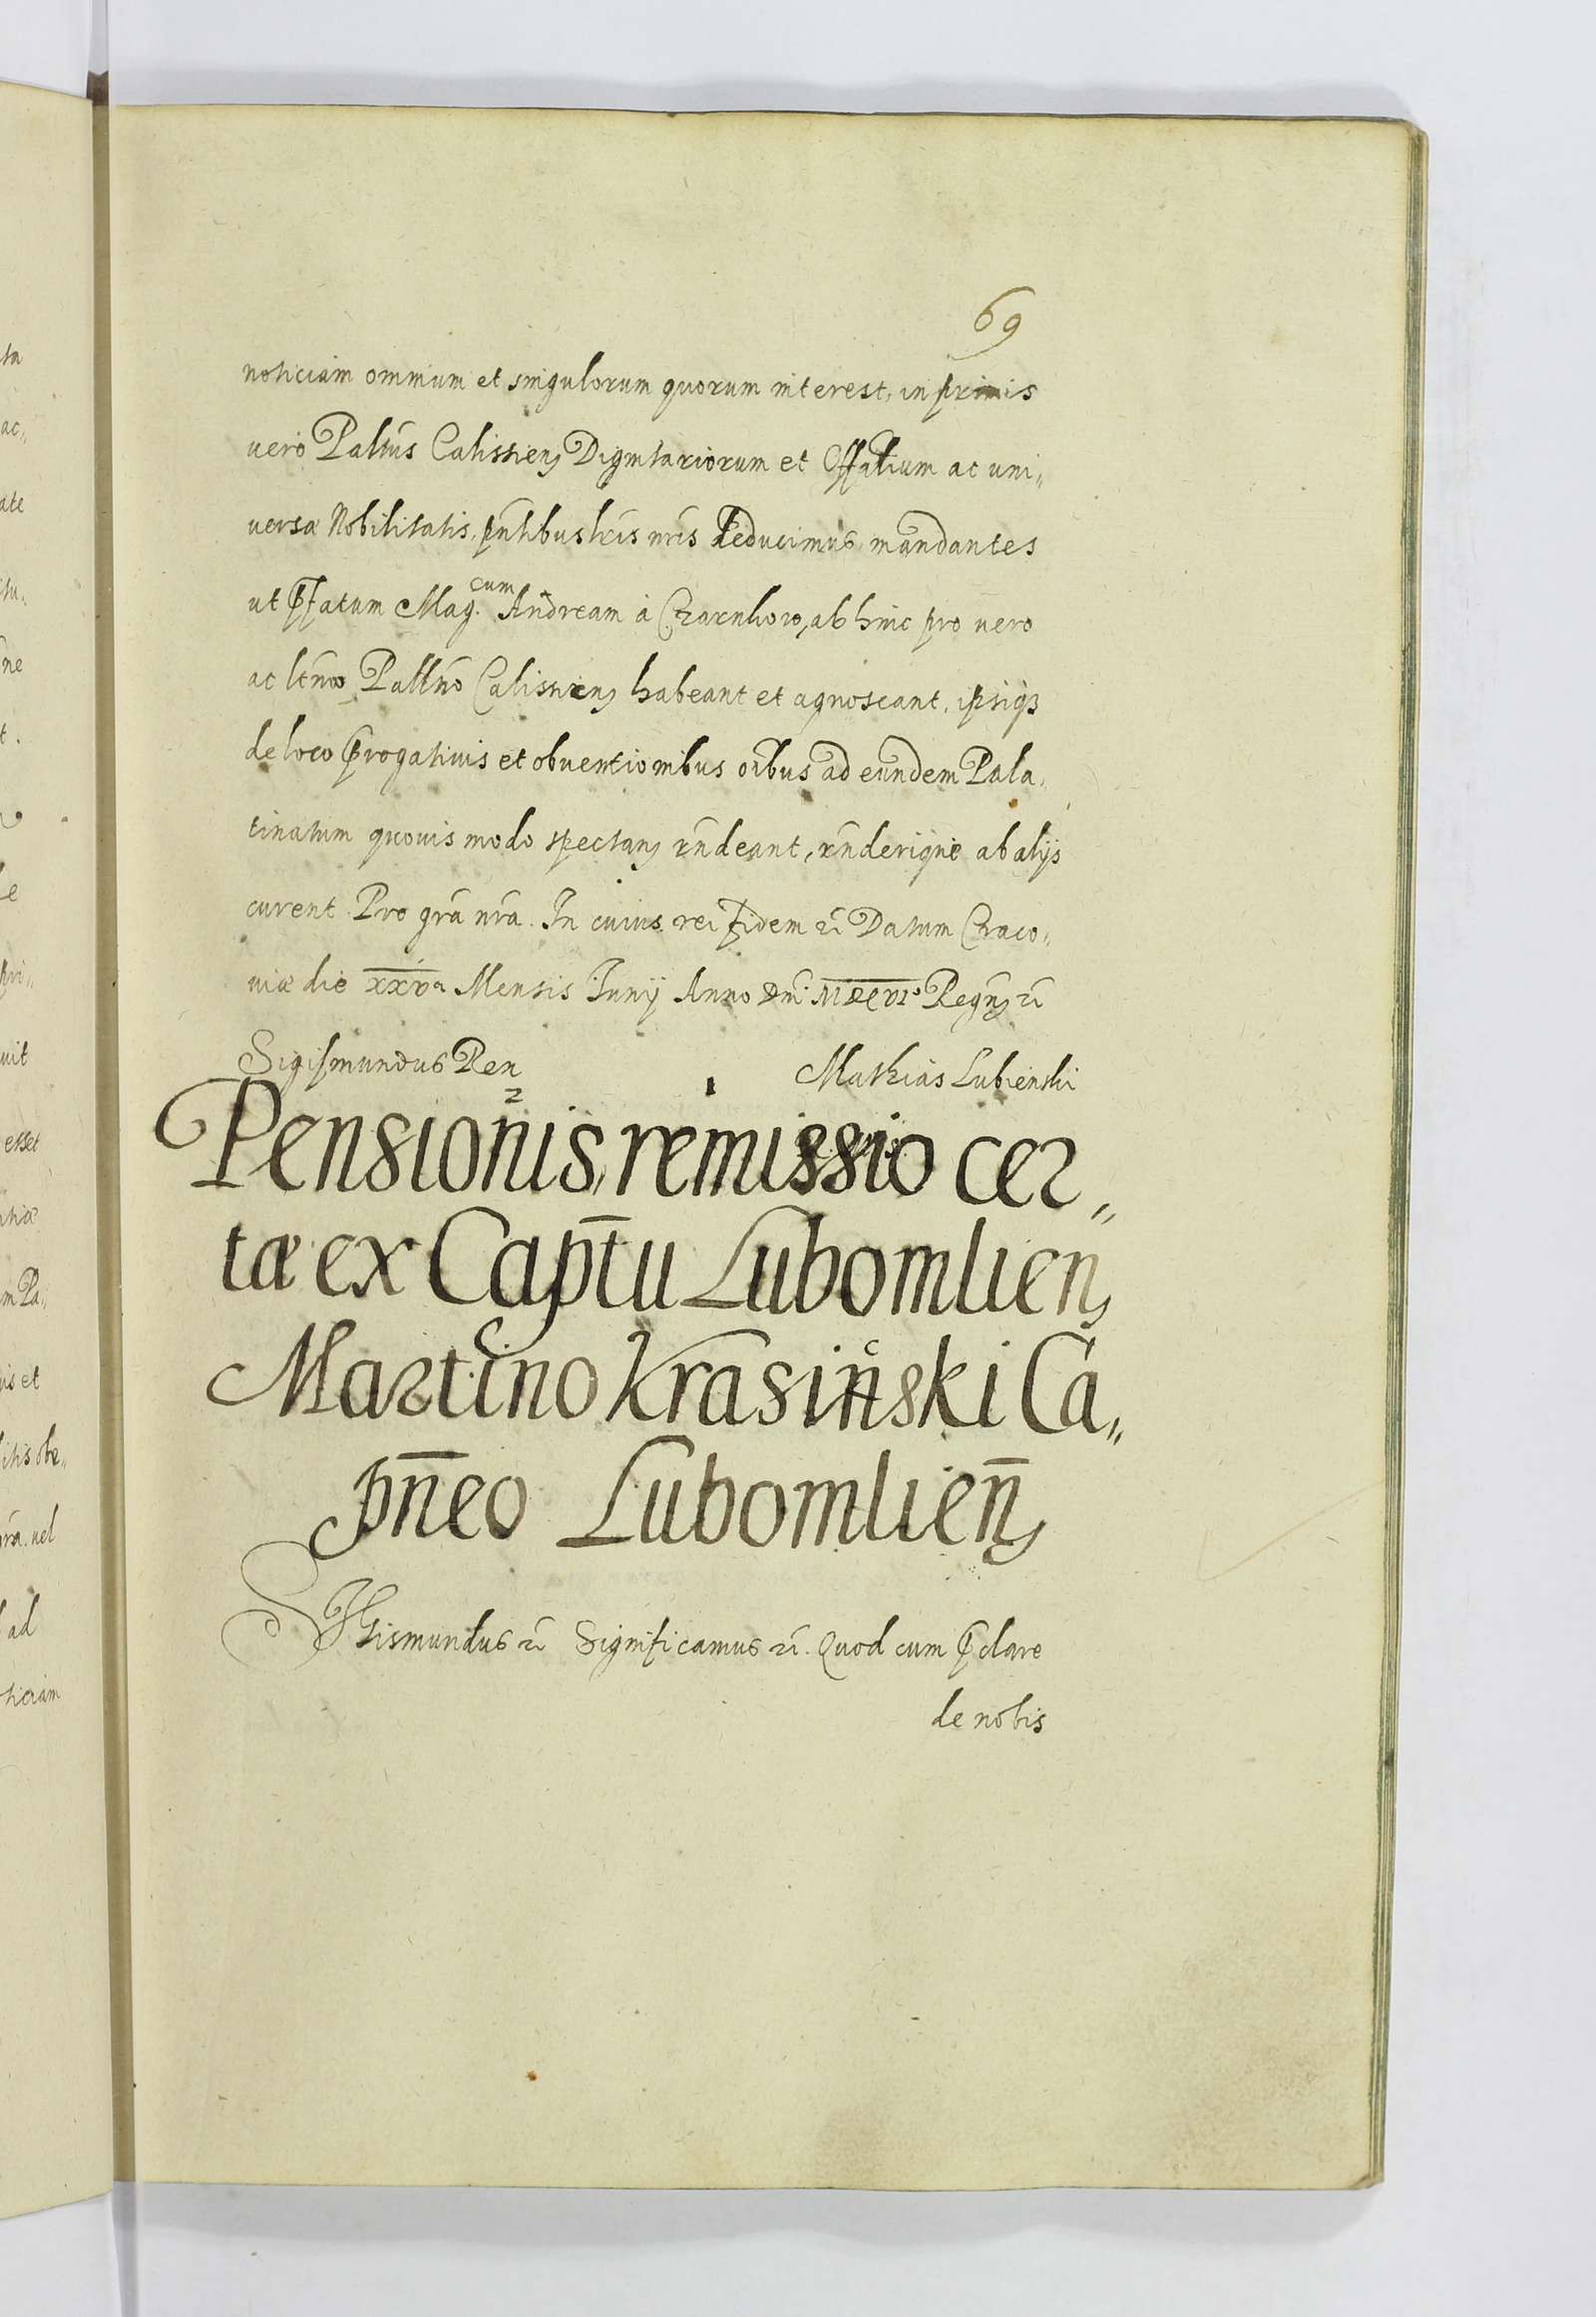 69
noticiam omnium et singulorum quorum interest, in primis
vero Paltũs Calissien Dignitariorum et Offalium ac uni„
versæ Nobilitatis, pñtibus lr̃is nr̃is deducimus, mandantes
ut p̃fatum Mag.cum Andream à Czarnkow, ab hinc pro vero
ac ltm̃o Pallño Calissien habeant et agnoscant, ipsiq₃
de loco p̃rogativis et obventionibus oĩbus ad eundem Pala„
tinatum quovis modo spectan rñdeant, rñderique ab alijs
curent Pro grã nrã. In cuius rei fidem ẽt Datum Craco„
viæ die xxvᵃ Mensis Junij Anno Dñi MDCVIᵒ Regñ ẽt
Sigismundus Rex Mathias Lubienski
2 1
Pensionis, remissio cer„
tæ ex Capt̃u Lubomlien
Martino Krasiński Ca„
pñeo Lubomlieñ
SIgismundus ẽt Significamus ẽt. Quod cum p̃clare
de nobis